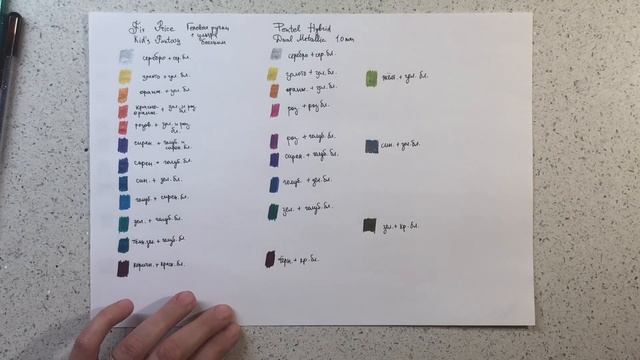 Fix Price Гелевая ручки
Kid's Fantasy + цифры
большим
серебро + сер. бл.
золото + зол. бл.
оранж + зол. бл.
красно- + зол. и роз.
оранж. бл.
розов. + зол. и роз.
бл.
сирен + голуб. и
сирен. бл.
сирен. + голуб. бл.
син. + зел. бл.
голуб. + сирен. бл.
зел. + голуб. бл.
тёмн. зел. + голуб. бл.
коричн. + красн. бл.
Pentel Hybrid
Dual Metallic 1.0 mm
серебро + сер. бл.
золото + зол. бл.
оранж. + зол. бл.
роз + роз бл.
роз + голуб. бл.
сирен. + голуб. бл.
голуб. + зел. бл.
зел. + голуб. бл.
чёрн. + кр. бл.
жёлт. + зол. бл.
син. + зел. бл.
зел. + кр. бл.